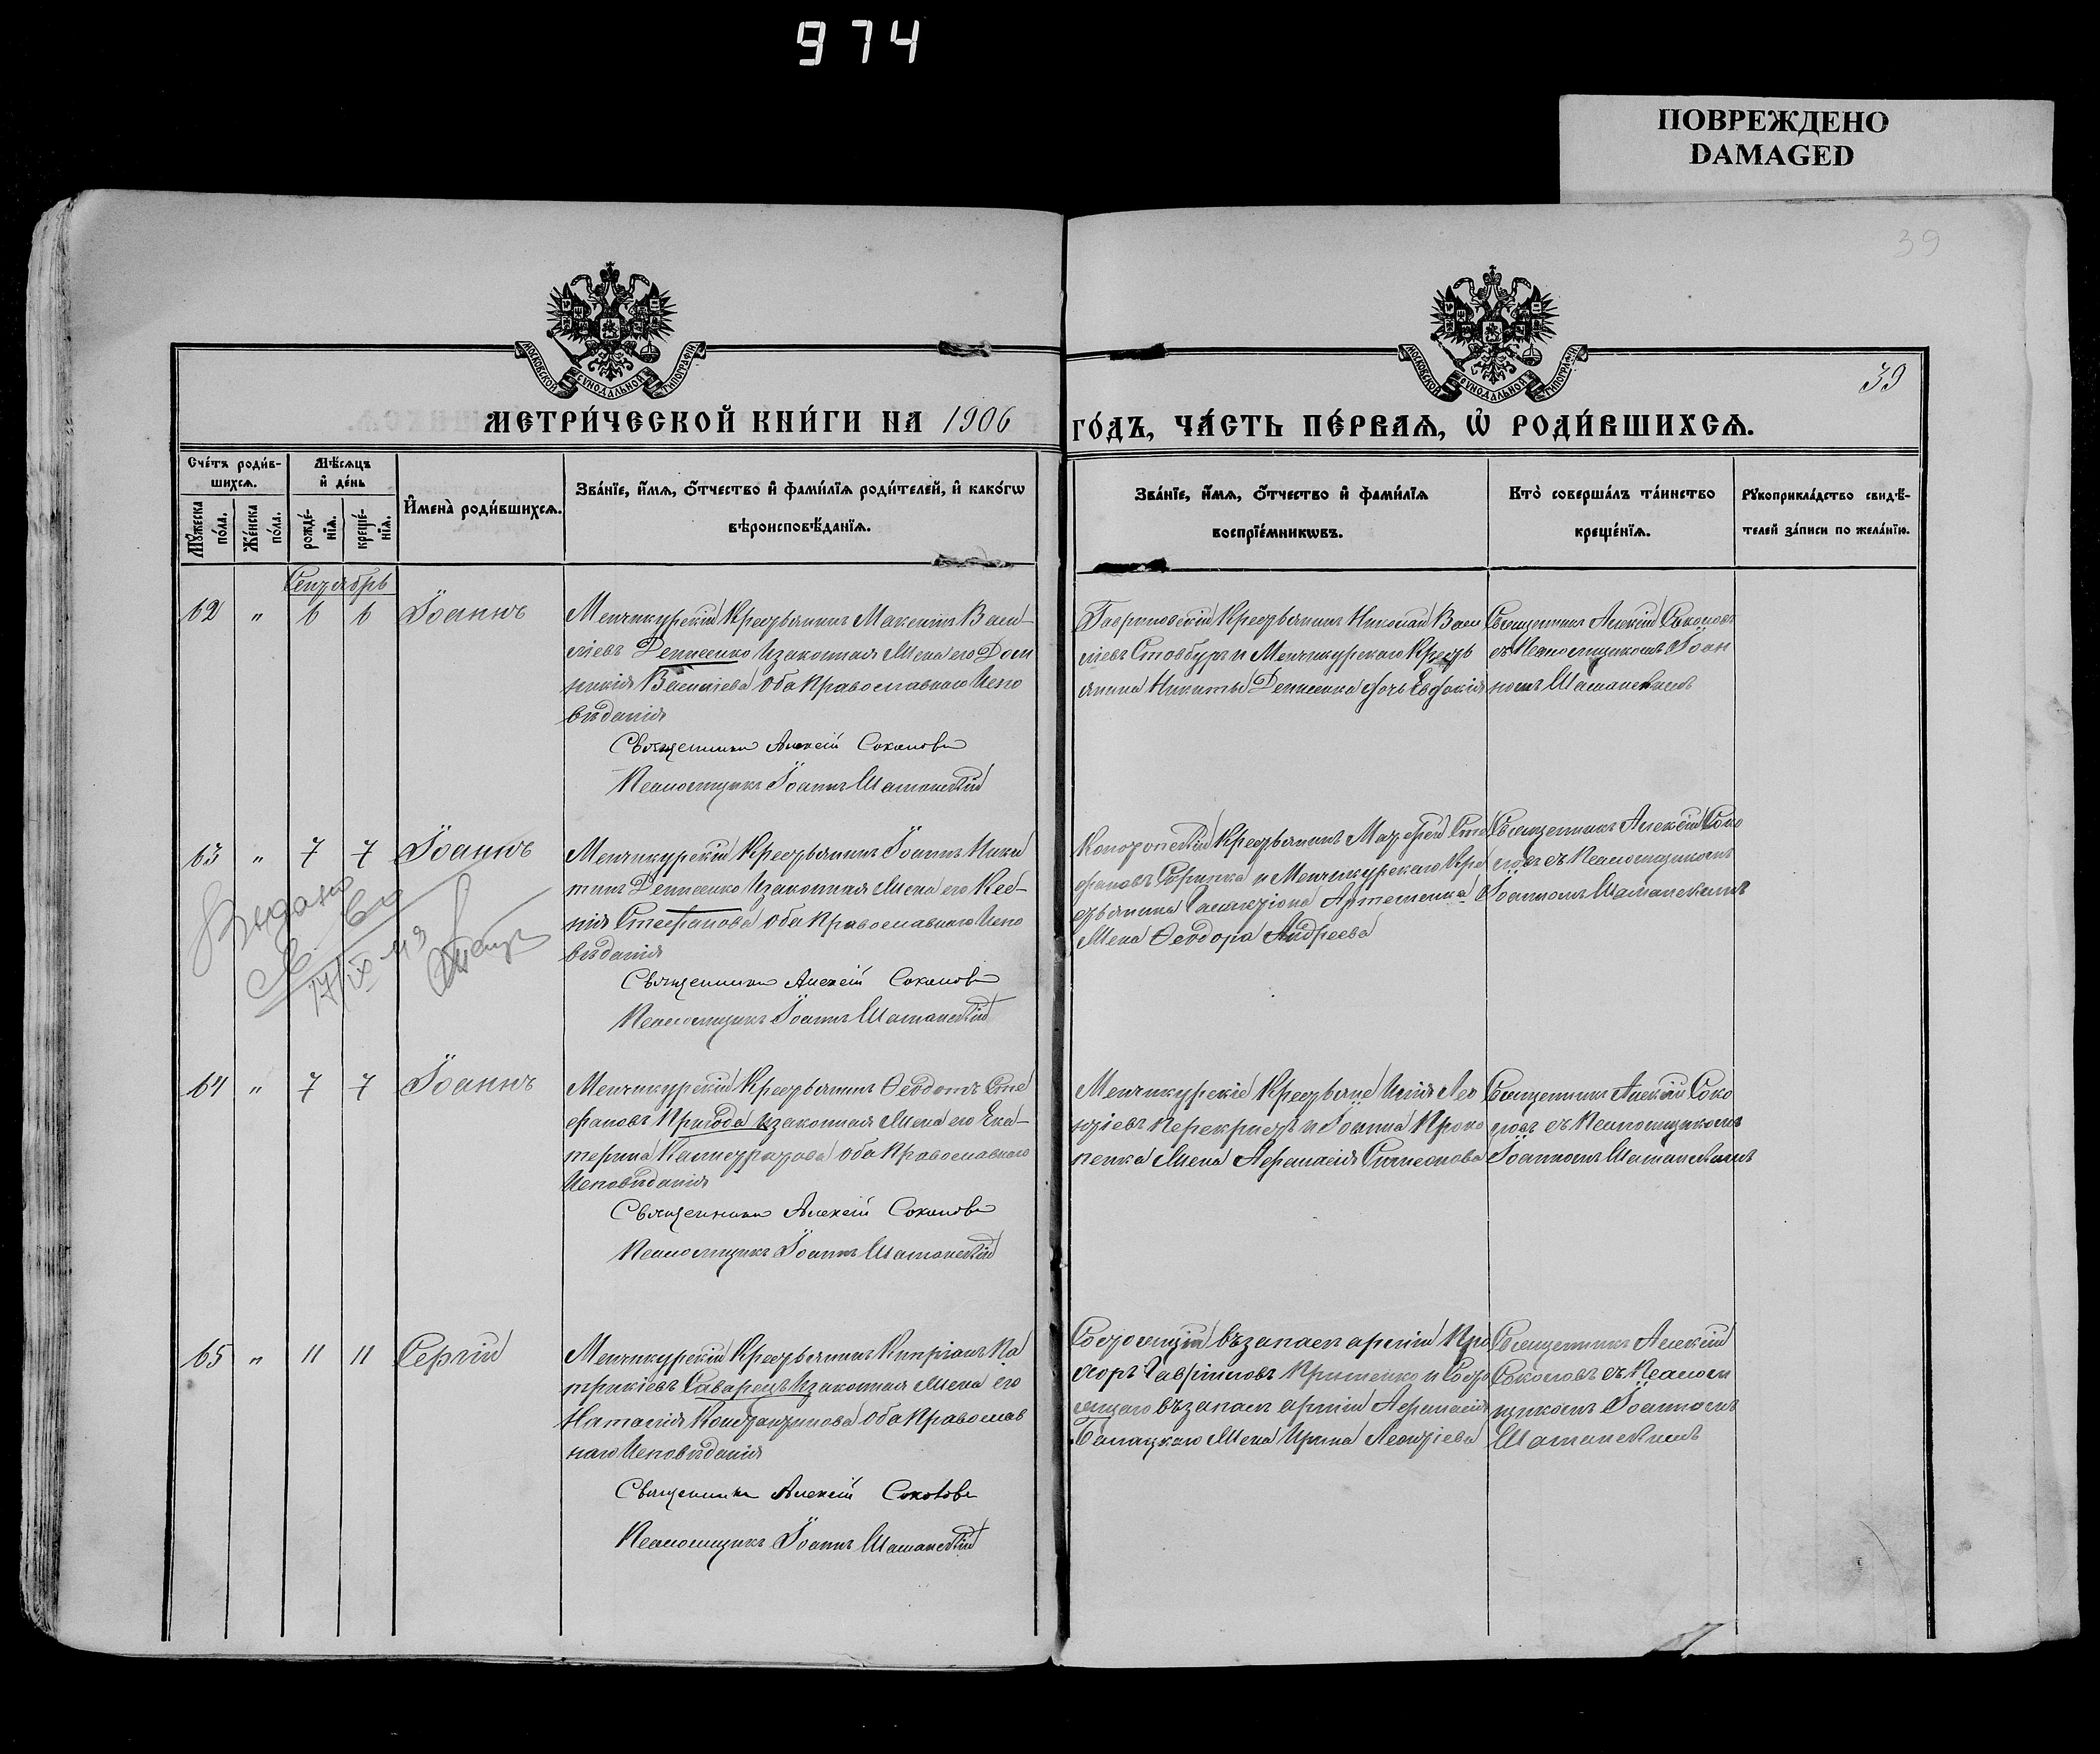 974
ПОВРЕЖДЕНО
DAMAGED
39
МОСКОВСКОЙ СѴНОДАЛЬНОЙ ТИПОГРАФІИ
МОСКОВСКОЙ СѴНОДАЛЬНОЙ ТИПОГРАФІИ
39
МЕТРИ́ЧЕСКОЙ КНИ́ГИ НА 1906
ГО́ДЪ, ЧА́СТЬ ПЕ́РВАѦ, Ѡ҆ РОДИ́ВШИХСѦ.
Сче́тъ роди́в-
шихсѧ.
Мꙋ́жеска по́ла.
Же́нска по́ла.
Мѣ́сѧцъ
и҆ де́нь
рожде́-
нїѧ.
креще́-
нїѧ.
И҆мена̀ роди́вшихсѧ.
Зва́нїе, и҆́мѧ, ѻ҆́тчество и҆ фами́лїѧ роди́телей, и҆ како́гѡ
вѣроисповѣ́данїѧ.
Зва́нїе, и҆́мѧ, ѻ҆́тчество и҆ фами́лїѧ
воспрїе́мникѡвъ.
Кто̀ соверша́лъ та́инство
креще́нїѧ.
Рꙋкоприкла́дство свидѣ́-
телей за́писи по жела́нїю.
Сентябрь
62 " 6 6 Іоаннъ
Менчикурскій Крестьянинъ Максимъ Васи-
ліевъ Денисенко и законная жена его Дом
никія Василіева оба Православнаго Испо
вѣданія
Священникъ Алексій Соколовъ
Псаломщикъ Іоаннъ Шаманскій
Гавриловскій Крестьянинъ Николай Васи
ліевъ Стовбуръ и Менчикурскаго Кресть
янина Никиты Денисенка дочь Евдокія
Священникъ Алексій Соколовъ
съ Псаломщикомъ Іоан
номъ Шаманскимъ
63 " 7 7 Іоаннъ
Менчикурскій Крестьянинъ Іоаннъ Ники
тинъ Денисенко и законная жена его Ксе-
нія Стефанова оба Православнаго Испо
вѣданія
Священникъ Алексій Соколовъ
Псаломщикъ Іоаннъ Шаманскій
Крестьянинъ Матфей Сте
фановъ и Менчикурскаго Кре
стьянина Артеменка
жена Ѳеодора Андреева
Священникъ Алексій Соко
ловъ съ Псаломщикомъ
Іоанномъ Шаманскимъ
Выдано
17/IX
64 " 7 7 Іоаннъ
Менчикурскій Крестьянинъ Ѳеодотъ Сте
фановъ Пригода и законная жена его Ека-
терина Калистратова оба Православнаго
Исповѣданія
Священникъ Алексій Соколовъ
Псаломщикъ Іоаннъ Шаманскій
Менчикурскіе Крестьяне Илія Лео
нтіевъ Перекрестъ и Іоанна Проко
пенка жена Аѳанасія Симеонова
Священникъ Алексій Соко
ловъ съ Псаломщикомъ
Іоанномъ Шаманскимъ
65 " 11 11 Сергій
Менчикурскій Крестьянинъ Кипріанъ Па
трикіевъ Саварецъ и законная жена его
Наталія Константинова оба Православ
наго Исповѣданія
Священникъ Алексій Соколовъ
Псаломщикъ Іоаннъ Шаманскій
Состоящій въ запасѣ арміи Про
хоръ Гавріиловъ Кришенко и Состо
ящаго въ запасѣ арміи Аѳанасія
Балацкаго жена Ирина Леонтіева
Священникъ Алексій
Соколовъ съ Псалом
щикомъ Іоанномъ
Шаманскимъ